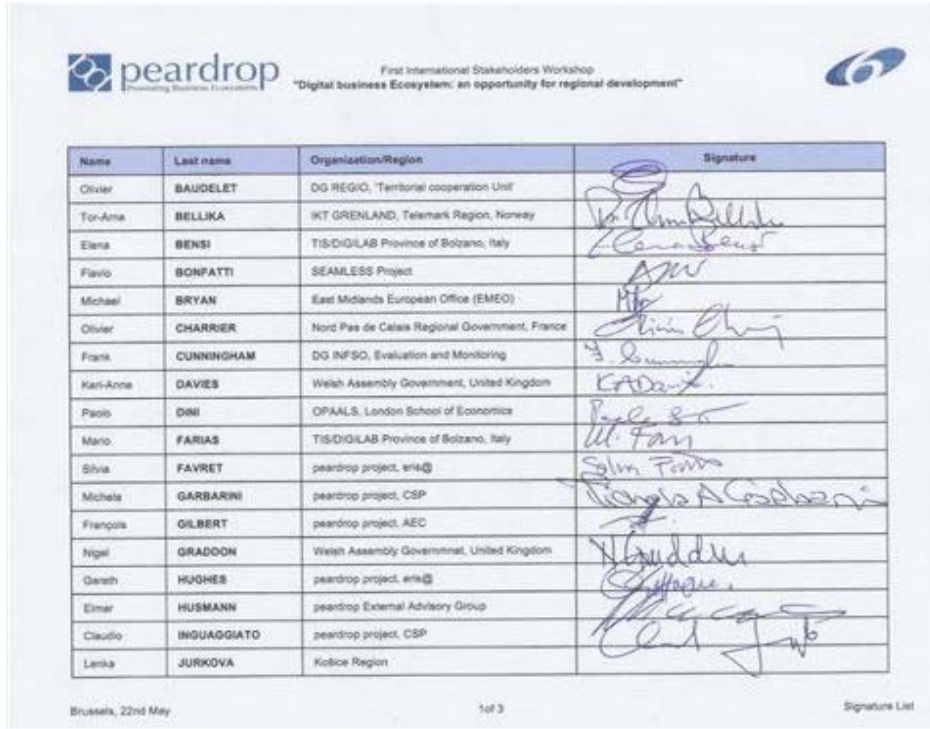 peardrop
Promoting Business Ecosystems
First International Stakeholders Workshop
"Digital business Ecosystem: an opportunity for regional development"
6
Name Last name Organization/Region Signature
Olivier BAUDELET DG REGIO, 'Territorial cooperation Unit'
Tor-Arne BELLIKA IKT GRENLAND, Telemark Region, Norway
Elena BENSI TIS/DIGILAB Province of Bolzano, Italy
Flavio BONFATTI SEAMLESS Project
Michael BRYAN East Midlands European Office (EMEO)
Olivier CHARRIER Nord Pas de Calais Regional Government, France
Frank CUNNINGHAM DG INFSO, Evaluation and Monitoring
Keri-Anne DAVIES Welsh Assembly Government, United Kingdom KADavies
Paolo DINI OPAALS, London School of Economics
Mario FARIAS TIS/DIGILAB Province of Bolzano, Italy
Silvia FAVRET peardrop project, eris@
Michela GARBARINI peardrop project, CSP
François GILBERT peardrop project, AEC
Nigel GRADDON Welsh Assembly Governmnet, United Kingdom
Gareth HUGHES peardrop project, eris@
Elmar HUSMANN peardrop External Advisory Group
Claudio INGUAGGIATO peardrop project, CSP
Lenka JURKOVA Košice Region
Brussels, 22nd May 1of 3 Signature List